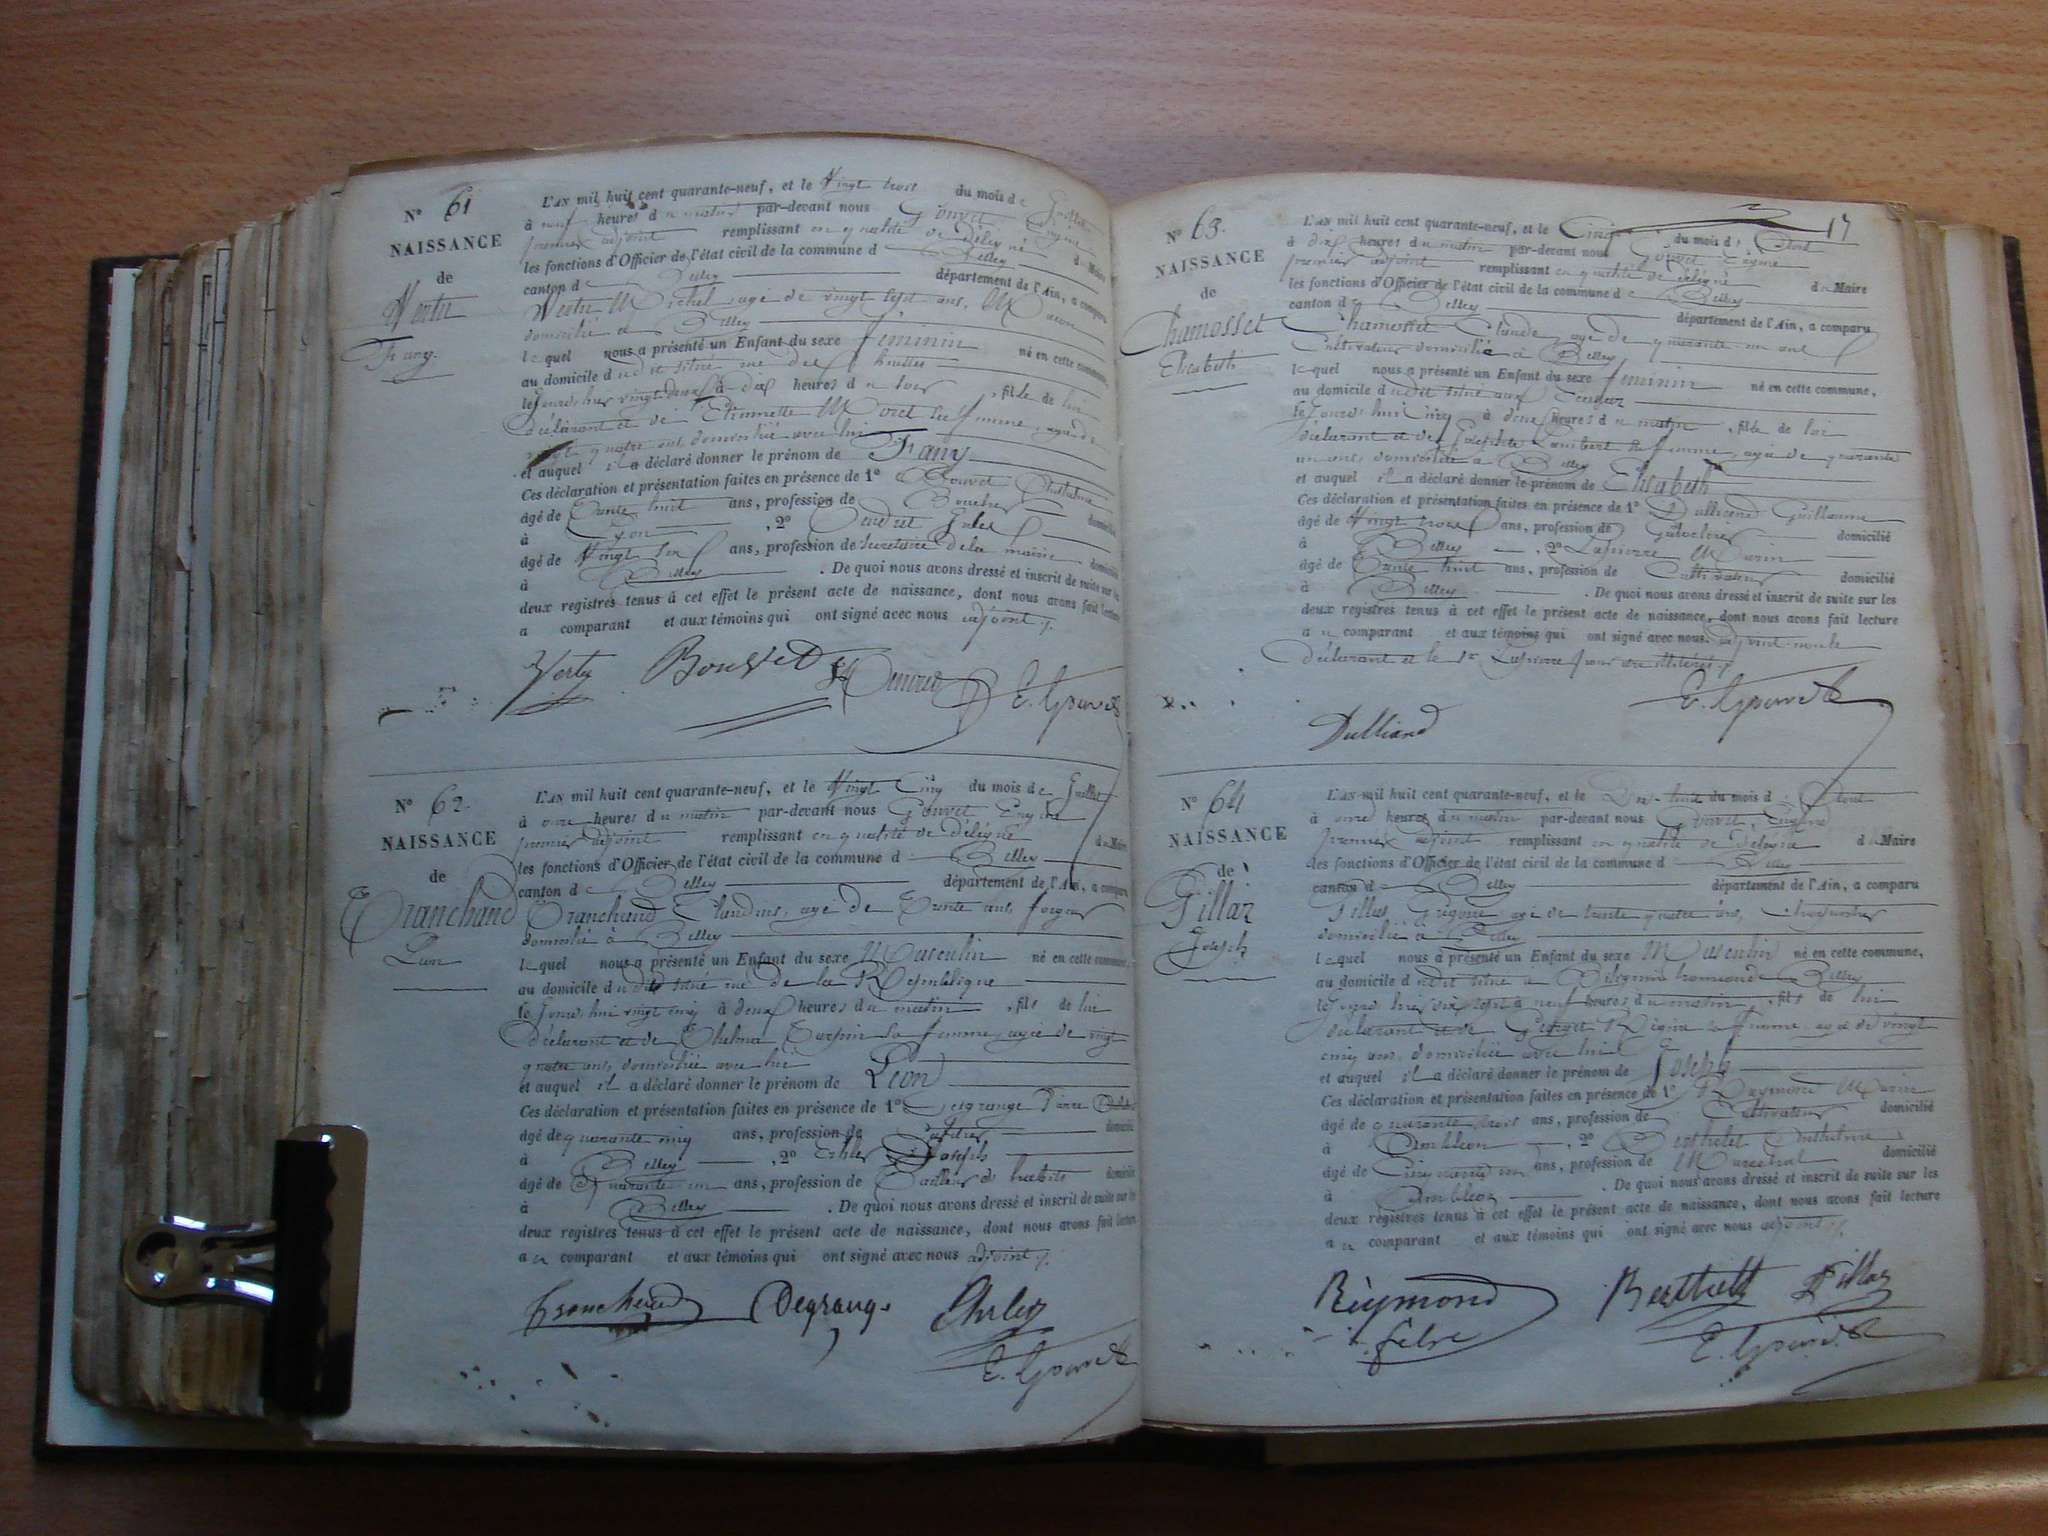 N° 61
NAISSANCE
de
Vertu
Fany.
L'AN mil huit cent quarante-neuf, et le Vingt trois du mois de Juillet
à neuf heures du matin par-devant nous Gouvet Eugène
premier adjoint remplissant en qualité de délégué du Maire
les fonctions d'Officier de l'état civil de la commune d Belley
canton d Belley département de l'Ain, a comparu
Michel, agé de vingt sept ans, Maçon
domicilié à Belley
lequel nous a présenté un Enfant du sexe féminin né en cette commune,
au domicile dudit situé rue des
le jourd'hier vingt deux à dix heures du soir, fille de lui
déclarant et de Etiennette Morel sa femme, agée de
vingt quatre ans domiciliée avec lui
et auquel il a déclaré donner le prénom de Fany
Ces déclaration et présentation faites en présence de 1° Bouvet
âgé de Trente huit ans, profession de domicilié
à Lyon, 2° Jules
âgé de Vingt six ans, profession de secretaire de la mairie domicilié
à Belley. De quoi nous avons dressé et inscrit de suite sur les
deux registres tenus à cet effet le présent acte de naissance, dont nous avons fait lecture
a comparant et aux témoins qui ont signé avec nous adjoint
Bouvet E. Gouvet
N° 62
NAISSANCE
de
Tranchand
Léon
L'AN mil huit cent quarante-neuf, et le Vingt Cinq du mois de Juillet
à onze heures du matin par-devant nous Gouvet Eugène
premier adjoint remplissant en qualité de délégué du Maire
les fonctions d'Officier de l'état civil de la commune d Belley
canton d Belley département de l'Ain, a comparu
Tranchand Claudius, agé de Trente ans,
domicilié à Belley
lequel nous a présenté un Enfant du sexe Masculin né en cette commune,
au domicile dudit situé rue de la République
le jourd'hui vingt cinq à deux heures du matin, fils de lui
déclarant et de sa femme, agée de vingt
quatre ans, domiciliée avec lui
et auquel il a déclaré donner le prénom de Léon
Ces déclaration et présentation faites en présence de 1° Degrange Pierre
âgé de quarante cinq ans, profession de domicilié
à Belley, 2° Joseph
âgé de Quarante un ans, profession de Tailleur d'habits domicilié
à Belley. De quoi nous avons dressé et inscrit de suite sur les
deux registres tenus à cet effet le présent acte de naissance, dont nous avons fait lecture
au comparant et aux témoins qui ont signé avec nous adjoint
Tranchand Degrange
E. Gouvet
17
N° 63.
NAISSANCE
de
Chamosset
Elisabeth
L'AN mil huit cent quarante-neuf, et le Cinq du mois d Aout
à dix heures du matin par-devant nous Gouvet Eugène
premier adjoint remplissant en qualité de délégué du Maire
les fonctions d'Officier de l'état civil de la commune d Belley
canton d Belley département de l'Ain, a comparu
Chamosset Claude, agé de quarante un ans
Cultivateur domicilié à Belley
lequel nous a présenté un Enfant du sexe féminin né en cette commune,
au domicile dudit situé aux
le jourd'hui Cinq à deux heures du matin, fille de lui
déclarant et de Josephte Lambert sa femme, agée de quarante
un ans, domiciliée à Belley
et auquel il a déclaré donner le prénom de Elisabeth
Ces déclaration et présentation faites en présence de 1° Dulliand Guillaume
âgé de Vingt trois ans, profession de domicilié
à Belley, 2° Lapierre Marin
âgé de Trente huit ans, profession de Cultivateur domicilié
à Belley. De quoi nous avons dressé et inscrit de suite sur les
deux registres tenus à cet effet le présent acte de naissance, dont nous avons fait lecture
au comparant et aux témoins qui ont signé avec nous adjoint non le
déclarant et le Sr Lapierre pour être illitérés
E. Gouvet
Dulliand
N° 64
NAISSANCE
de
Pillaz
Joseph
L'AN mil huit cent quarante-neuf, et le Dix-huit du mois d Aout
à onze heures du matin par-devant nous Gouvet Eugène
premier adjoint remplissant en qualité de délégué du Maire
les fonctions d'Officier de l'état civil de la commune d Belley
canton d Belley département de l'Ain, a comparu
Grégoire agé de trente quatre ans,
domicilié à Belley
lequel nous a présenté un Enfant du sexe Masculin né en cette commune,
au domicile dudit situé à Belley
le jourd'hier dix sept à neuf heures du matin, fils de lui
déclarant et de sa femme, agée de vingt
cinq ans, domiciliée avec lui
et auquel il a déclaré donner le prénom de Joseph
Ces déclaration et présentation faites en présence de 1° Reymond Marin
âgé de quarante trois ans, profession de Cultivateur domicilié
à Ambléon, 2° Berthelet Anthelme
âgé de Cinquante un ans, profession de Marechal domicilié
à Ambléon. De quoi nous avons dressé et inscrit de suite sur les
deux registres tenus à cet effet le présent acte de naissance, dont nous avons fait lecture
au comparant et aux témoins qui ont signé avec nous adjoint
Reymond Berthelet Pillaz
E. Gouvet